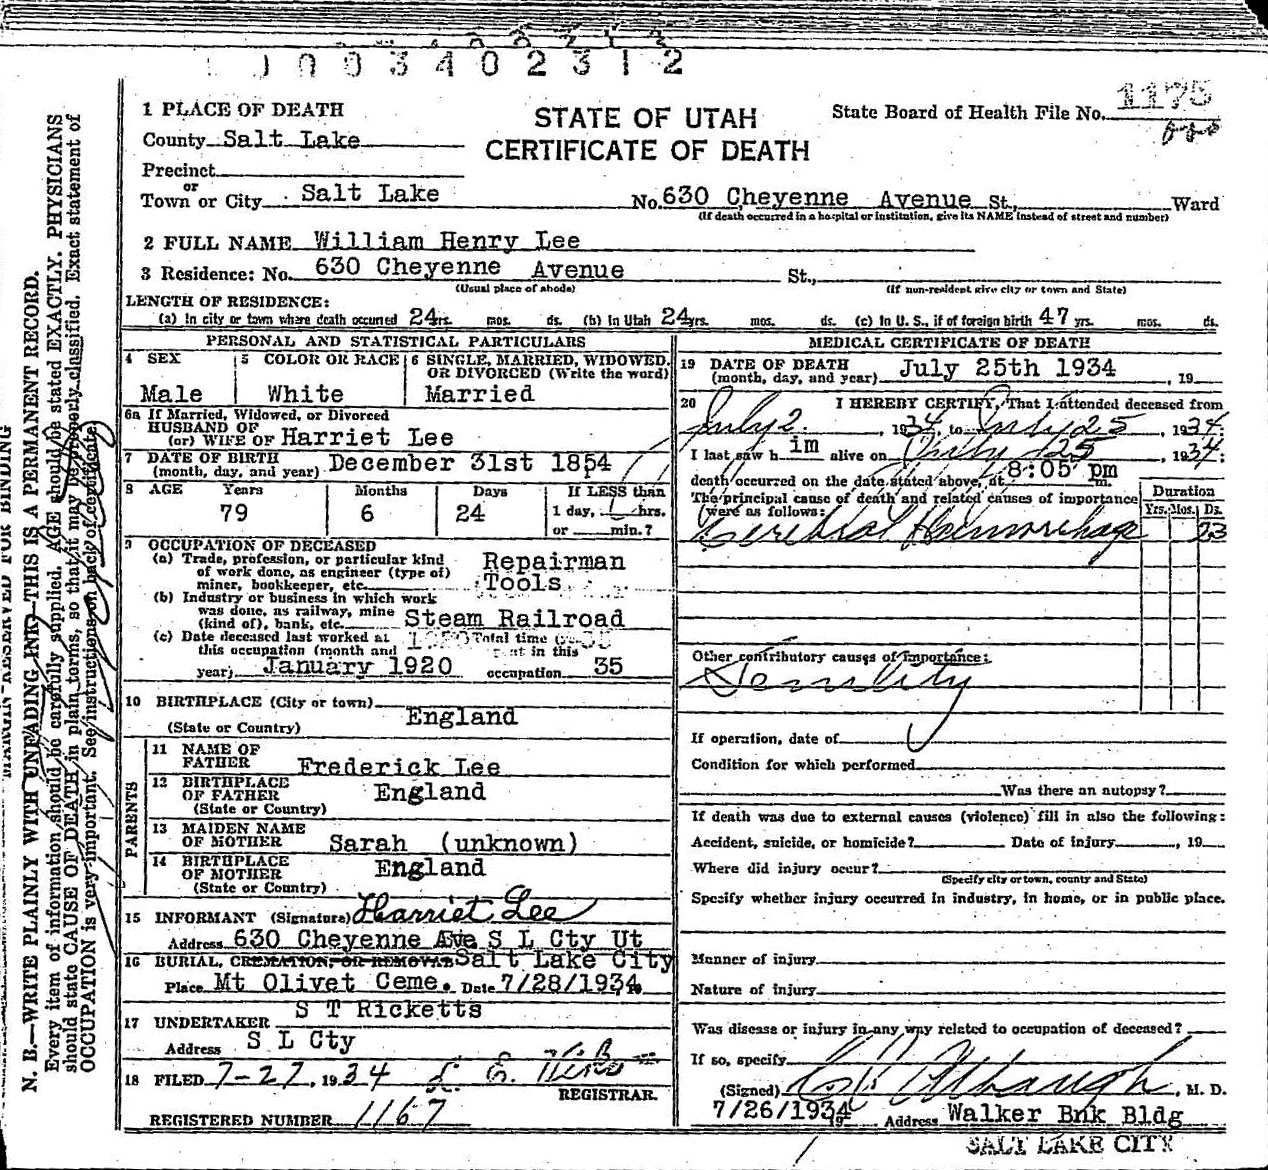 1003402312
1 PLACE OF DEATH
STATE OF UTAH
CERTIFICATE OF DEATH
State Board of Health File No. 1175
County Salt Lake
Precinct
or
Town or City Salt Lake No. 630 Cheyenne Avenue St., Ward
(If death occurred in a hospital or institution, give its NAME instead of street and number)
2 FULL NAME William Henry Lee
3 Residence: No. 630 Cheyenne Avenue St.,
(Usual place of abode) (If non-resident give city or town and State)
LENGTH OF RESIDENCE:
(a) In city or town where death occurred 24 rs. mos. ds. (b) In Utah 24 yrs. mos. ds. (c) In U. S., if of foreign birth 47 yrs. mos. ds.
PERSONAL AND STATISTICAL PARTICULARS
4 SEX 5 COLOR OR RACE 6 SINGLE, MARRIED, WIDOWED, OR DIVORCED (Write the word)
Male White Married
6a If Married, Widowed, or Divorced
HUSBAND OF
(or) WIFE OF Harriet Lee
7 DATE OF BIRTH
(month, day, and year) December 31st 1854
8 AGE Years Months Days If LESS than
79 6 24 1 day, hrs.
or min.?
9 OCCUPATION OF DECEASED
(a) Trade, profession, or particular kind
of work done, as engineer (type of)
miner, bookkeeper, etc. Repairman Tools
(b) Industry or business in which work
was done, as railway, mine
(kind of), bank, etc. Steam Railroad
(c) Date deceased last worked at
this occupation (month and
year) January 1920
Total time
spent in this
occupation 35
10 BIRTHPLACE (City or town)
(State or Country) England
PARENTS
11 NAME OF
FATHER Frederick Lee
12 BIRTHPLACE
OF FATHER England
(State or Country)
13 MAIDEN NAME
OF MOTHER Sarah (unknown)
14 BIRTHPLACE
OF MOTHER England
(State or Country)
15 INFORMANT (Signature) Harriet Lee
Address 630 Cheyenne Ave S L Cty Ut
16 BURIAL, CREMATION, OR REMOVAL Salt Lake City
Place Mt Olivet Ceme. Date 7/28/1934
17 UNDERTAKER S T Ricketts
Address S L Cty
18 FILED 7-27, 1934
REGISTRAR.
REGISTERED NUMBER 1167
MEDICAL CERTIFICATE OF DEATH
19 DATE OF DEATH
(month, day, and year) July 25th 1934, 19
20 I HEREBY CERTIFY, That I attended deceased from
July 2, 1934, to July 25, 1934;
I last saw h im alive on July 25, 1934;
death occurred on the date stated above, at 8:05 pm m.
The principal cause of death and related causes of importance
were as follows:
Duration
Yrs. Mos. Ds.
Cerebral Hemorrhage 23
Other contributory causes of importance:
Senility
If operation, date of
Condition for which performed
Was there an autopsy?
If death was due to external causes (violence) fill in also the following:
Accident, suicide, or homicide? Date of injury, 19
Where did injury occur?
(Specify city or town, county and State)
Specify whether injury occurred in industry, in home, or in public place.
Manner of injury
Nature of injury
Was disease or injury in any way related to occupation of deceased?
If so, specify
(Signed) M. D.
7/26/1934 19 Address Walker Bnk Bldg
SALT LAKE CITY
MARGIN RESERVED FOR BINDING
N. B.—WRITE PLAINLY WITH UNFADING INK—THIS IS A PERMANENT RECORD.
Every item of information should be carefully supplied. AGE should be stated EXACTLY. PHYSICIANS
should state CAUSE OF DEATH in plain terms, so that it may be properly classified. Exact statement of
OCCUPATION is very important. See instructions on back of certificate.